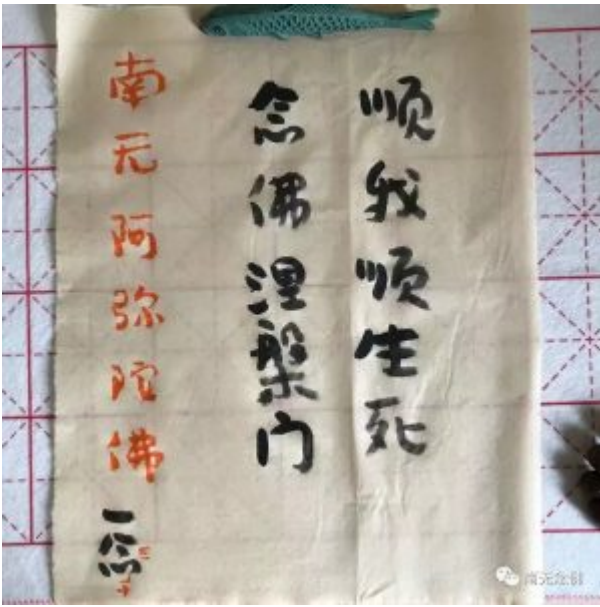 顺我顺生死
念佛涅槃门
南无阿弥陀佛
一念